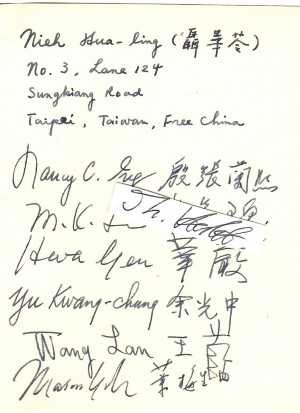 Nieh Hua-ling (聶華苓)
No. 3, Lane 124
Sungkiang Road
Taipei, Taiwan, Free China
Nancy C. Ing 殷張蘭熙
M. K.
Hwa Yen 華嚴
Yu Kwang-chung 余光中
Wang Lan 王藍
Mason Yeh 葉